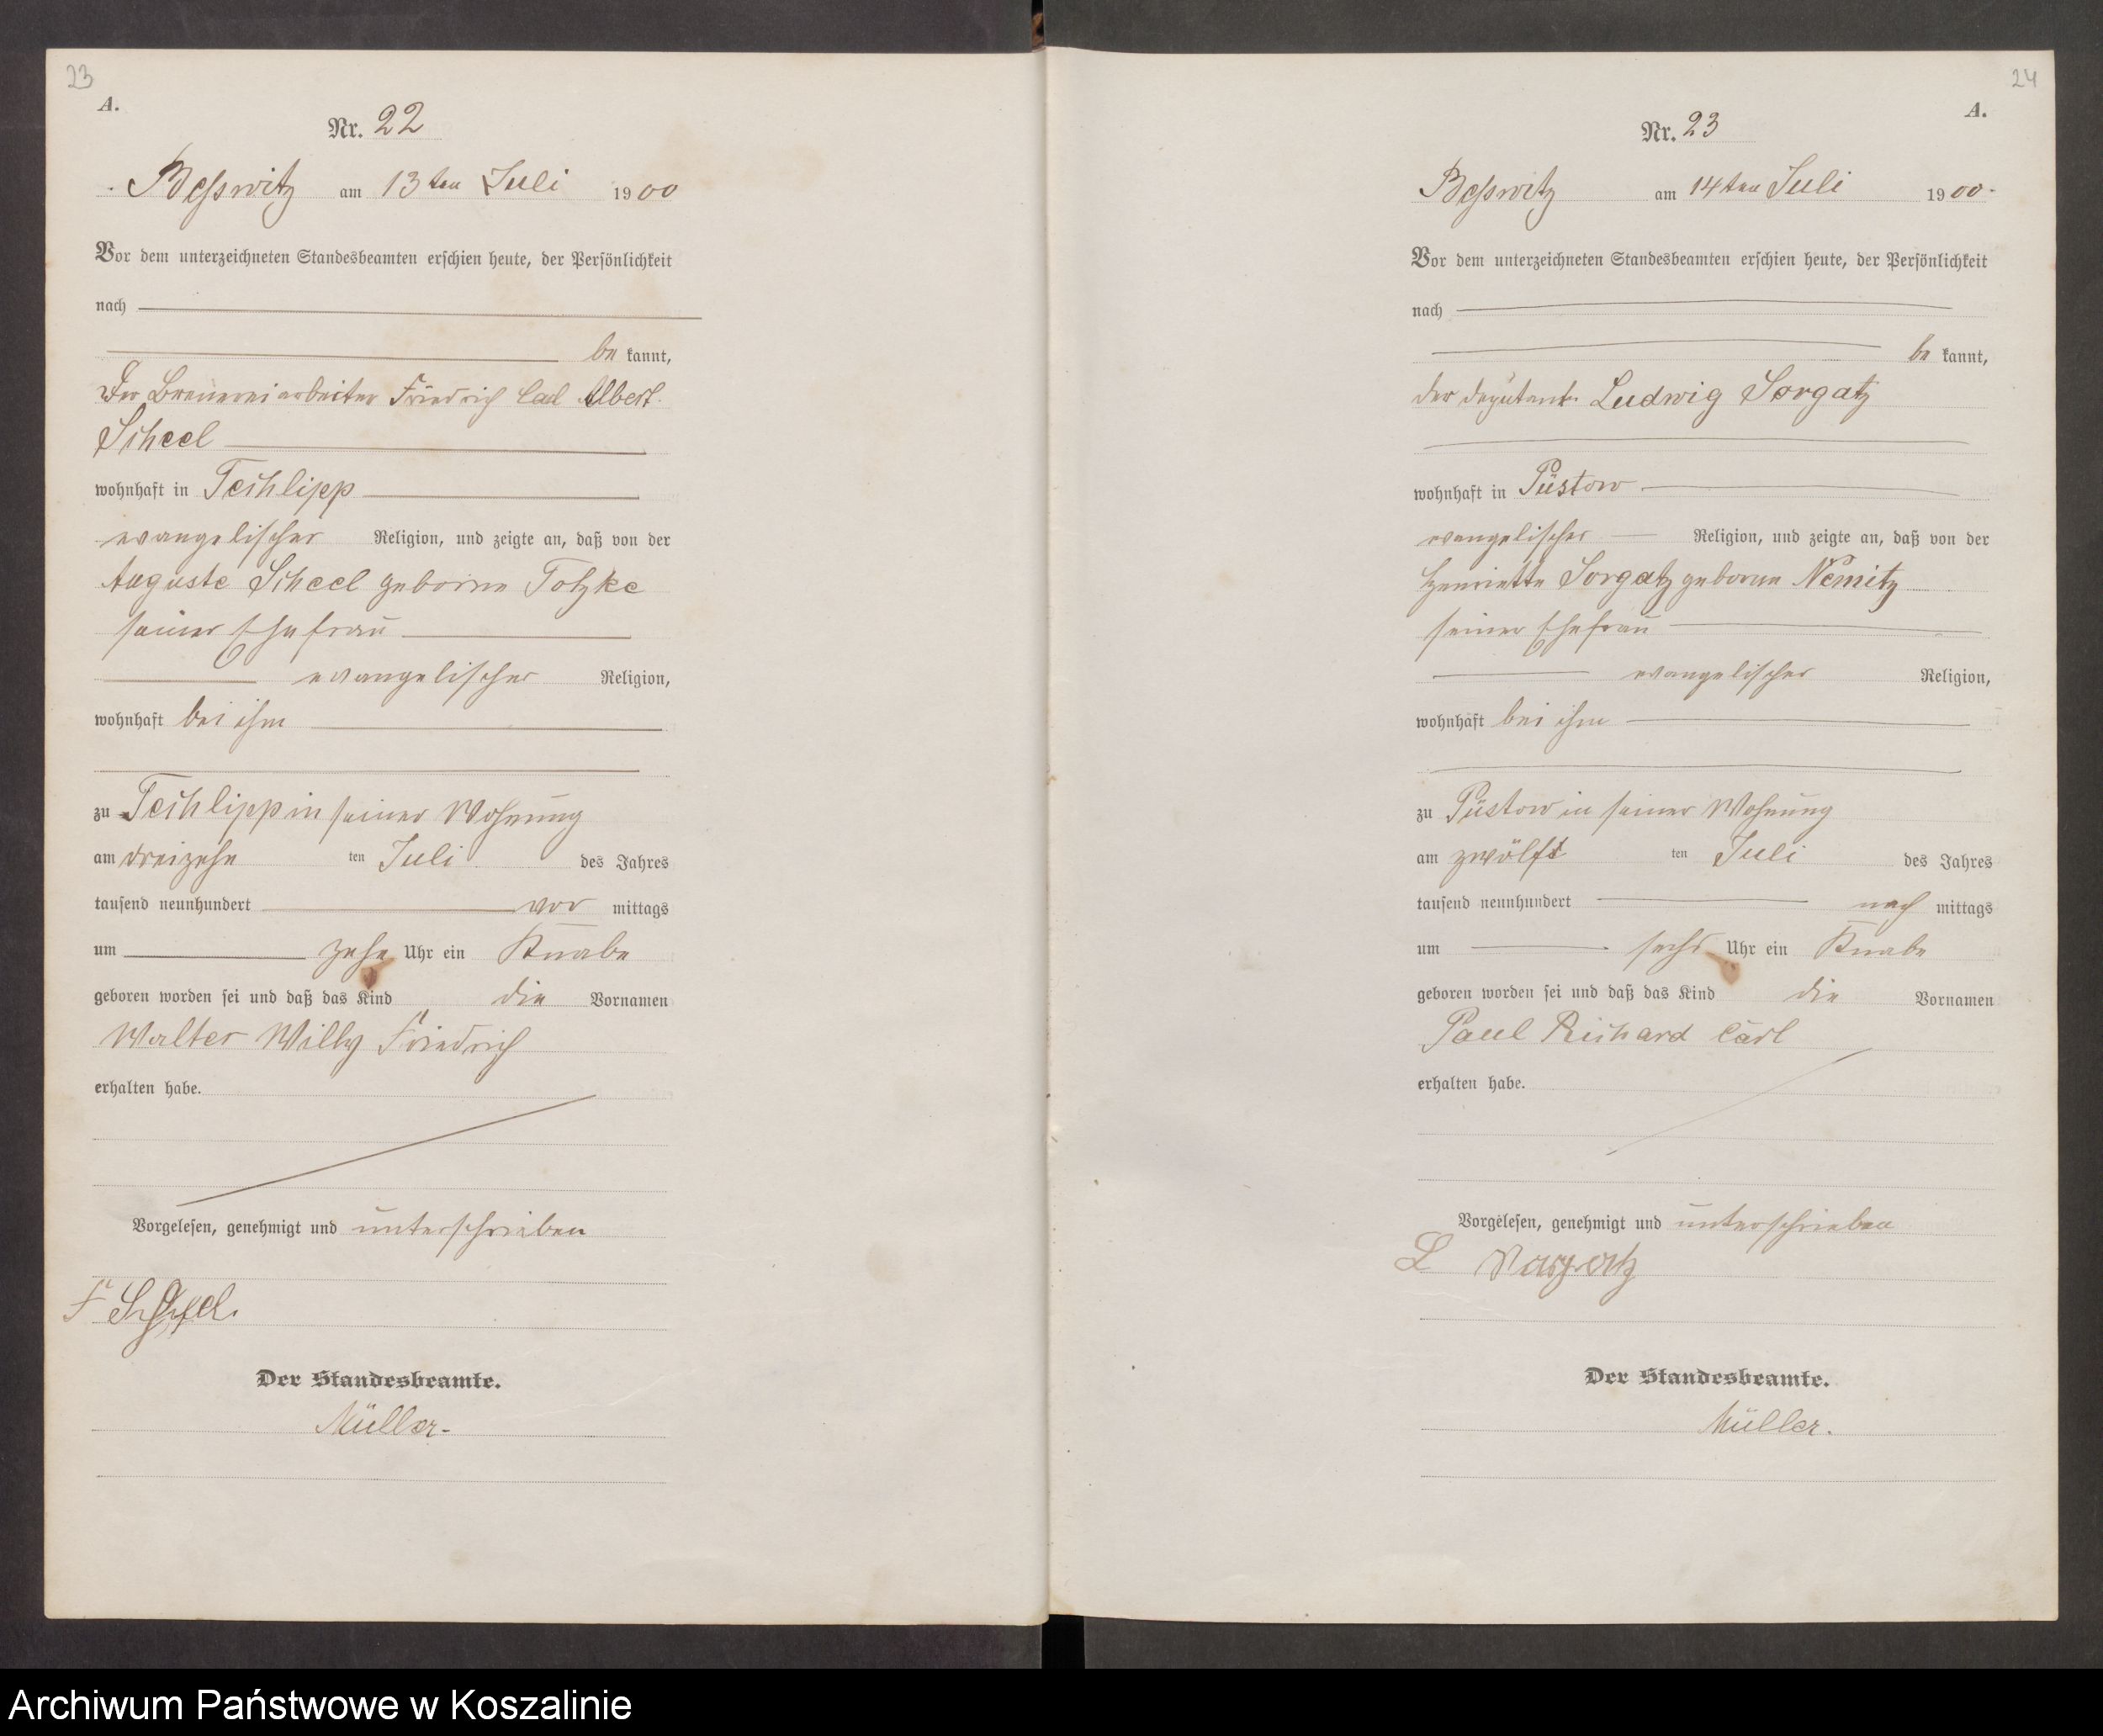 23
A.
Nr. 22
Beßwitz am 13ten Juli 1900
Vor dem unterzeichneten Standesbeamten erschien heute, der Persönlichkeit
nach
be kannt,
Der Brennereiarbeiter Friedrich Carl Albert
Scheel
wohnhaft in Techlipp
evangelischer Religion, und zeigte an, daß von der
Auguste Scheel geborne Totzke
seiner Ehefrau
evangelischer Religion,
wohnhaft bei ihm
zu Techlipp in seiner Wohnung
am dreizehn ten Juli des Jahres
tausend neunhundert vor mittags
um zehn Uhr ein Knabe
geboren worden sei und daß das Kind die Vornamen
Walter Willy Friedrich
erhalten habe.
Vorgelesen, genehmigt und unterschrieben
F Scheel.
Der Standesbeamte.
Müller-
24
A.
Nr. 23
Beßwitz am 14ten Juli 1900.
Vor dem unterzeichneten Standesbeamten erschien heute, der Persönlichkeit
nach
be kannt,
der Deputant Ludwig Sorgatz
wohnhaft in Püstow
evangelischer Religion, und zeigte an, daß von der
Henriette Sorgatz geborne Nemitz
seiner Ehefrau
evangelischer Religion,
wohnhaft bei ihm
zu Püstow in seiner Wohnung
am zwölft ten Juli des Jahres
tausend neunhundert nach mittags
um sechs Uhr ein Knabe
geboren worden sei und daß das Kind die Vornamen
Paul Richard Carl
erhalten habe.
Vorgelesen, genehmigt und unterschrieben
L
Der Standesbeamte.
Müller.
Archiwum Państwowe w Koszalinie